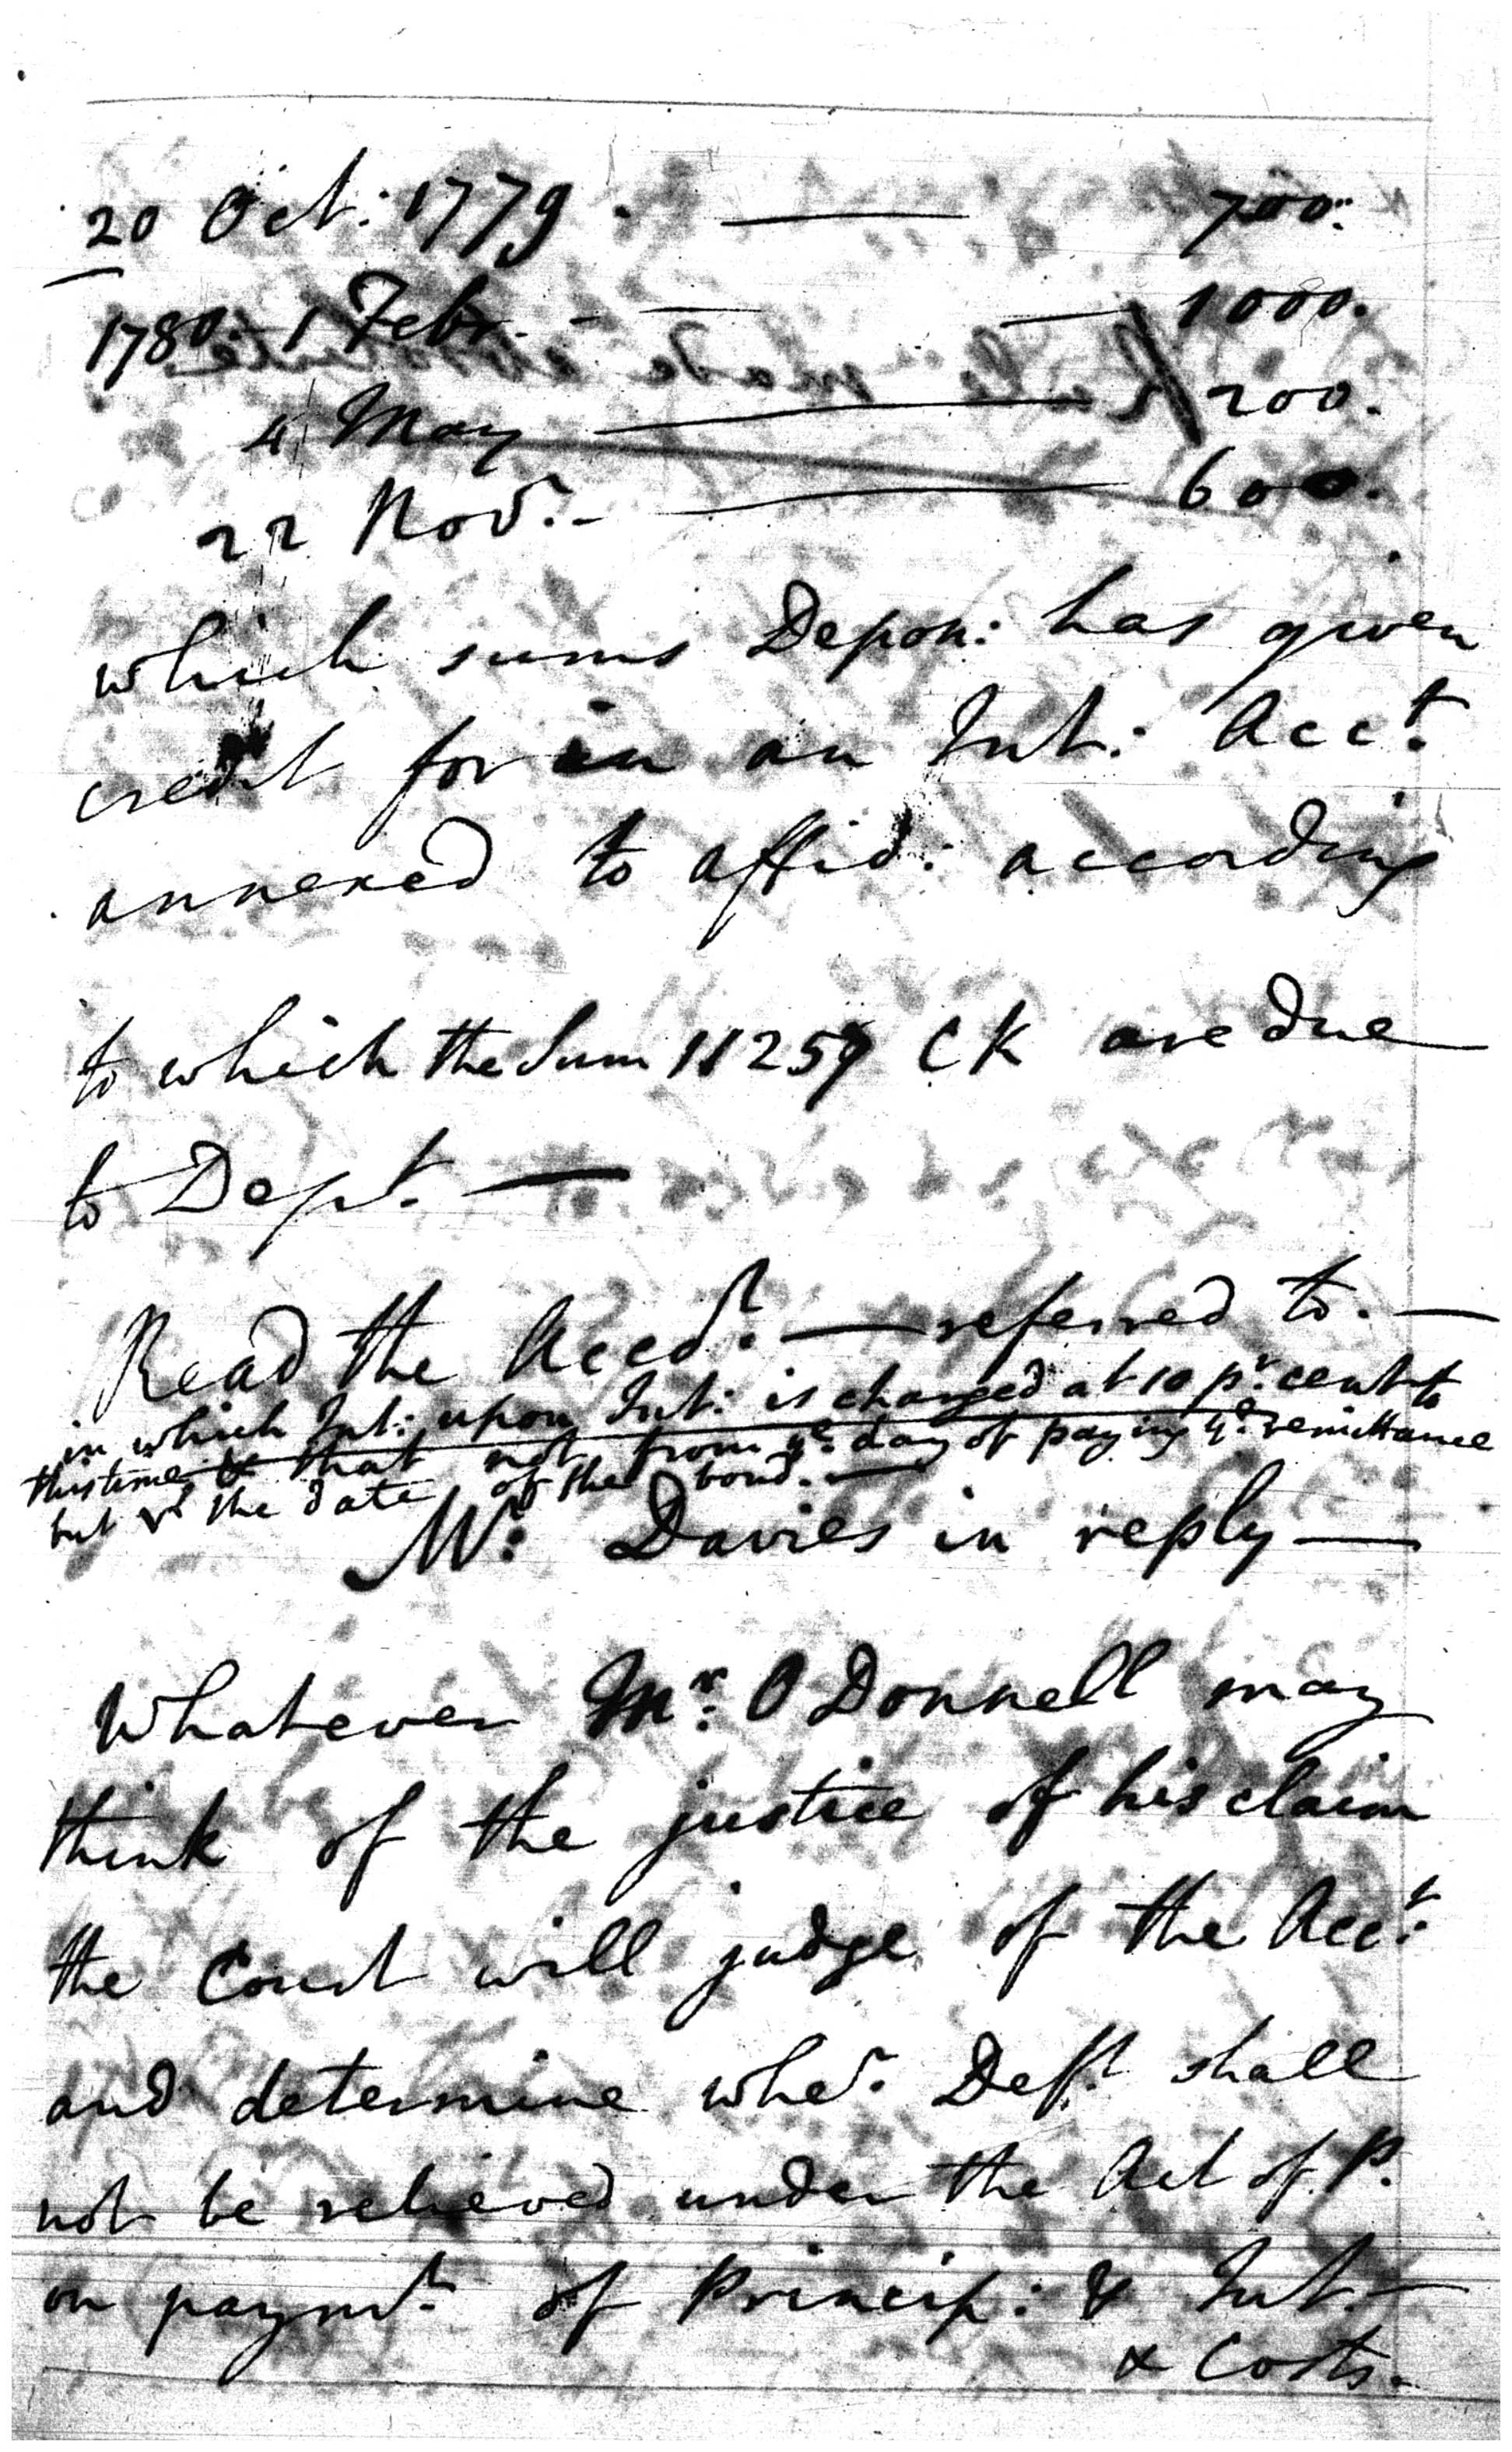 20 Oct: 1779. — 700.
1780. 1 Febr. - — — 1000.
4 May — 200.
22 Novr. - — 600.
which sums Depon: has given
credit for in an Int: Acct.
annexed to affid: according
to which the Sum 11259 CK are due
to Dept. —
Read the Acct. — referred to. —
in which Int: upon Int: is charged at 10 pr. cent to
this time & that not from ye. day of paying ye. remittance
but the date of the bond. —
Mr. Davies in reply —
Whatever Mr. O Donnell may
think of the justice of his claim
the Court will judge of the Acct.
and determine wher. Deft. shall
not be relieved under the Act of P.
on paymt. of Princip: & Int. —
& Costs.